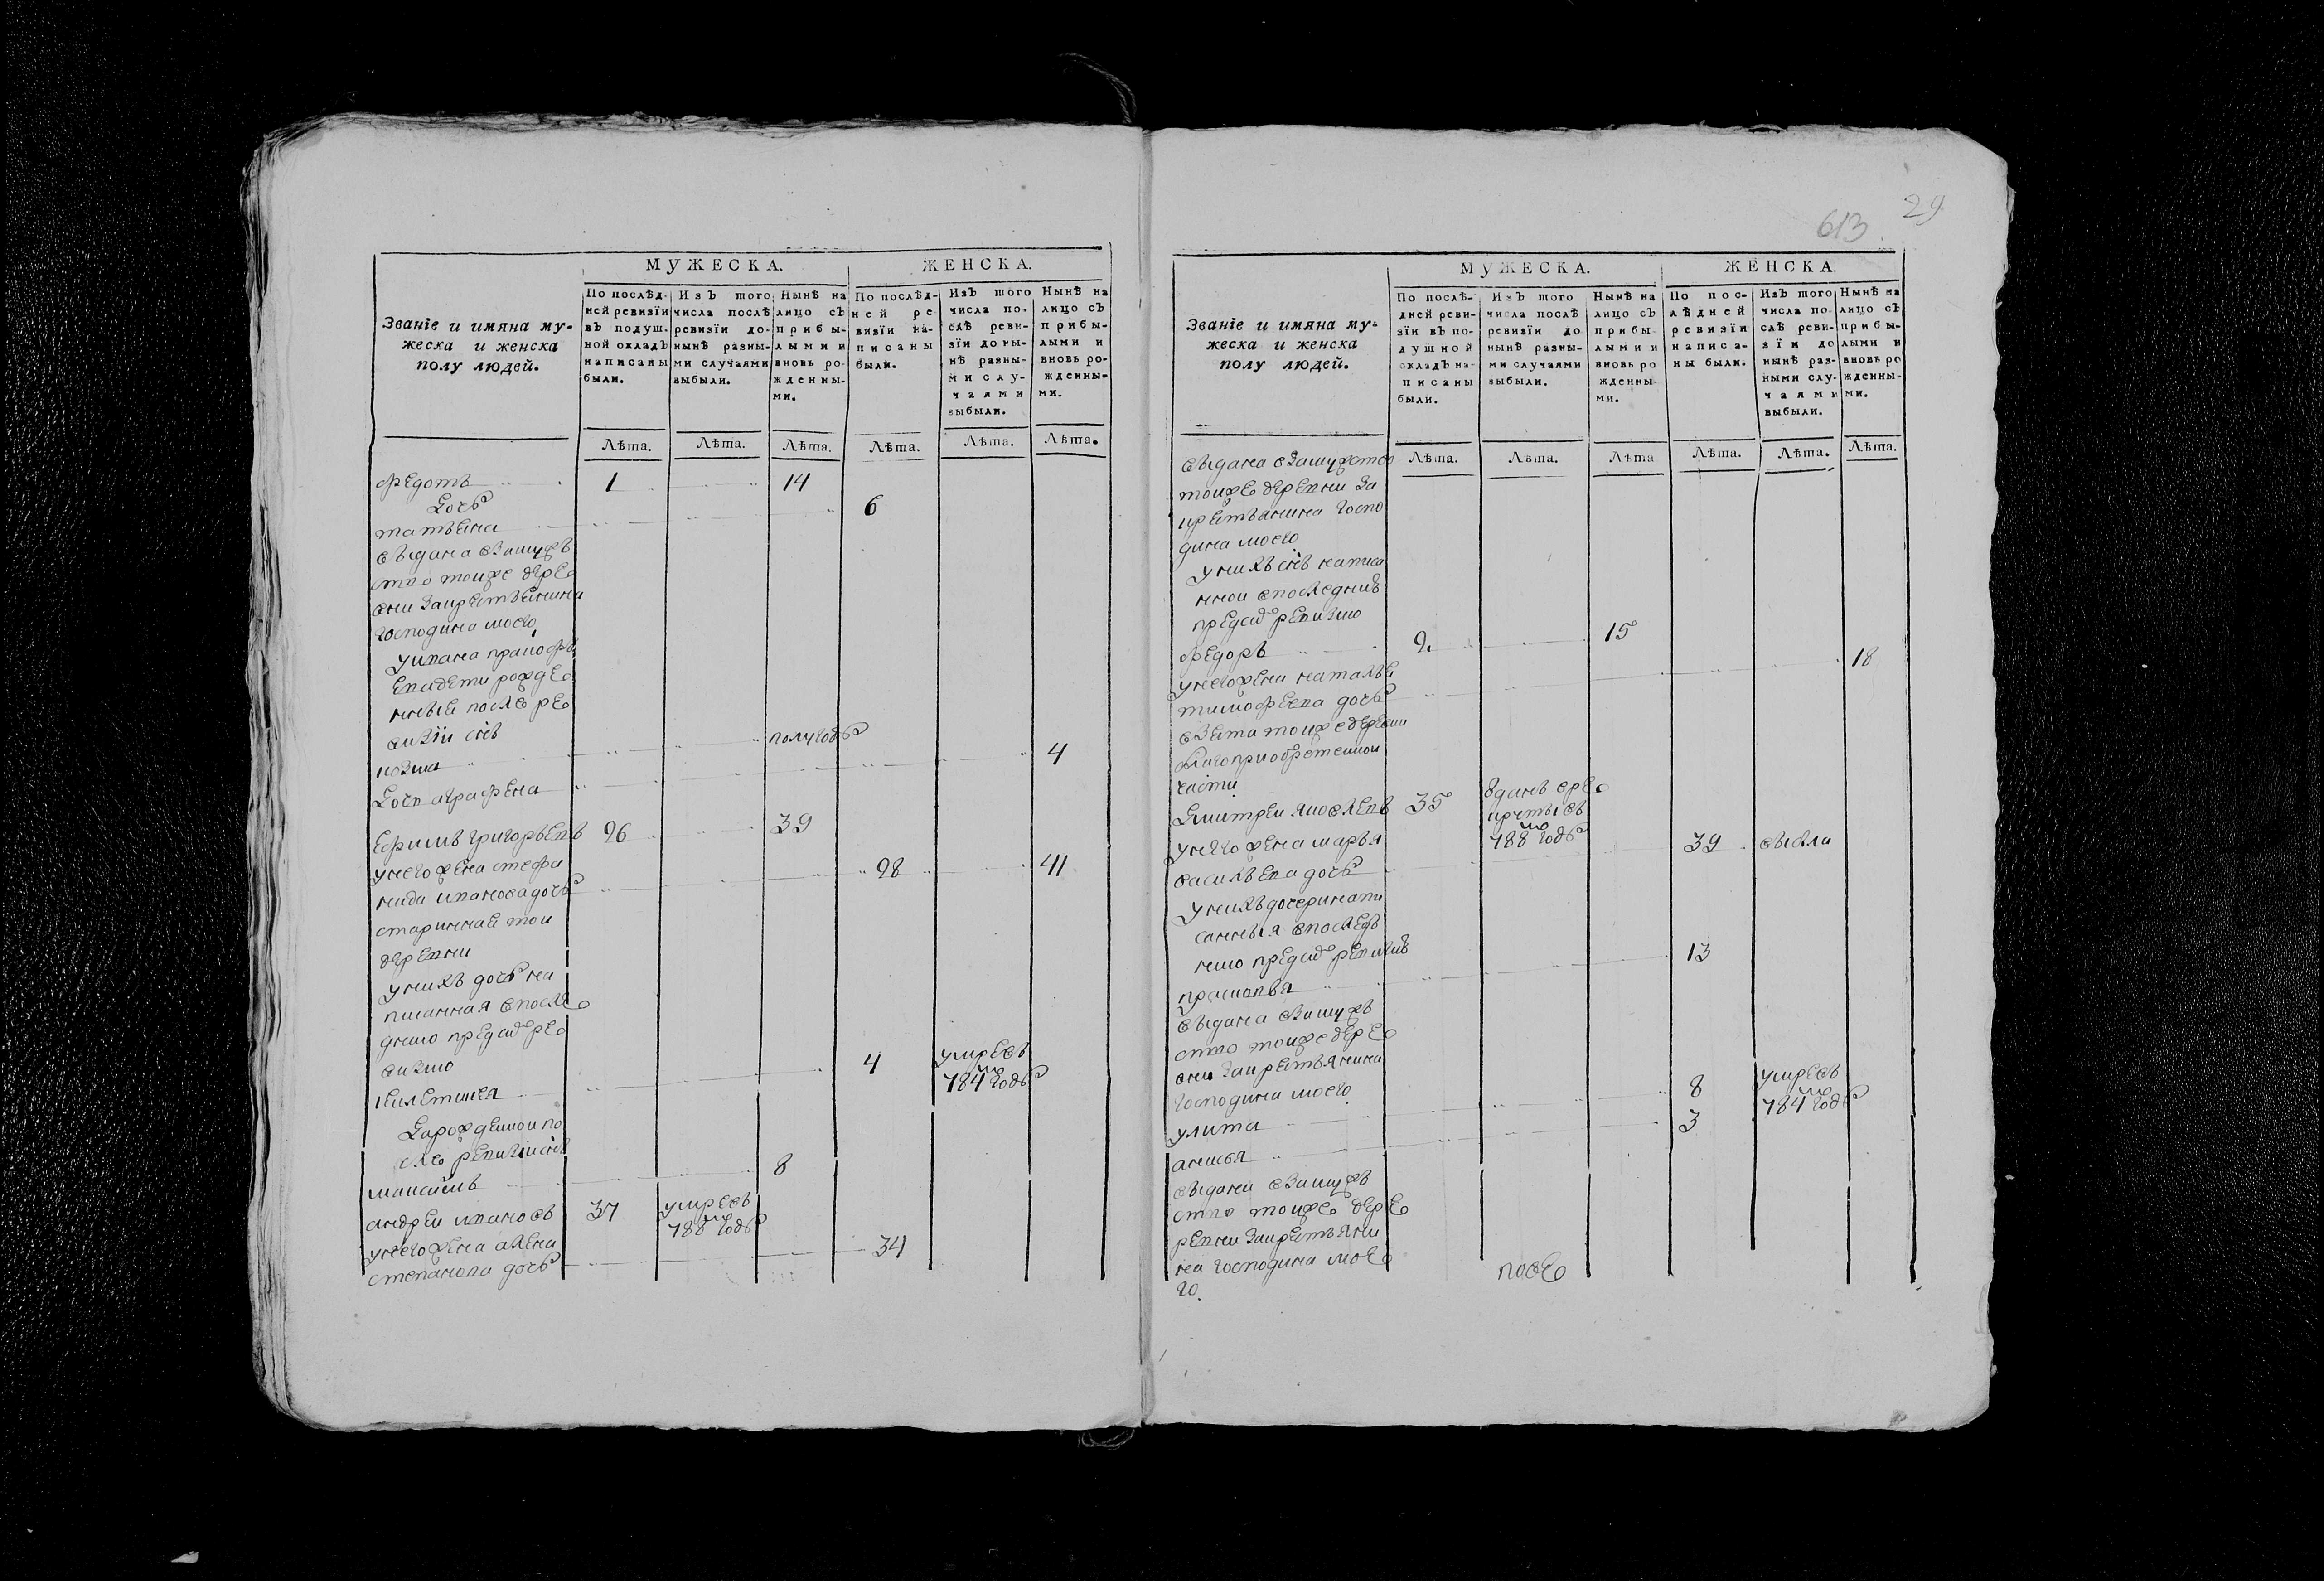 МУЖЕСКА.
ЖЕНСКА.
Званіе и имяна му-
жеска и женска
полу людей.
По послѣд-
ней ревизіи
въ подуш-
ной окладъ
написаны
были.
Изъ того
числа послѣ
ревизіи до-
нынѣ разны-
ми случаями
выбыли.
Нынѣ на
лицо съ
прибы-
лыми и
вновь ро-
жденны-
ми.
По послѣд-
ней ре
визіи на-
писаны
были.
Изъ того
числа по-
слѣ реви-
зіи до ны-
нѣ разны-
ми слу-
чаями
выбыли.
Нынѣ на
лицо съ
прибы-
лыми и
вновь ро-
жденны-
ми.
Лѣта. Лѣта. Лѣта. Лѣта. Лѣта. Лѣта.
федотъ 1 14
дочь
татьяна 6
выдана взамуж
ство тоиже дере
господина моего
рожде
нные после ре
визiи снъ
козма полугодъ
дочь аграфена 4
ефимъ григорьевъ 26 39
унего жена стефа
нида иванова дочь 28 41
старинная тои
деревни
унихъ дочь на
писанная впосле
днюю предсимъ ре
визию
4 умре въ
784 м годъ
рожденнои по
сле ревизiи снъ
максимъ 8
андреи ивановъ 37 умре въ
788 м годъ
унего жена алена
степанова дочь 34
613
29
МУЖЕСКА.
ЖЕНСКА
Званіе и имяна му-
жеска и женска
полу людей.
По послѣ-
дней реви-
зіи въ по-
душной
окладъ на-
писаны
были.
Изъ того
числа послѣ
ревизіи до
нынѣ разны-
ми случаями
выбыли.
Нынѣ на
лицо съ
прибы-
лыми и
вновь ро
жденны-
ми.
По пос-
лѣдней
ревизіи
написа-
ны были.
Изъ того
числа по-
слѣ реви-
зіи до
нынѣ раз-
ными слу-
чаями
выбыли.
Нынѣ на
лицо съ
прибы-
лыми и
вновь ро
жденны-
ми.
Лѣта. Лѣта. Лѣта Лѣта. Лѣта. Лѣта.
выдана взамужство
тоиже деревни за
крестьянина госпо
дина моего
унихъ снъ написа
ннои впоследнию
предсимъ ревизию
федоръ 2 15
унего жена наталья
тимофеева дочь 18
взята тоиже деревни
благоприобретеннои
части
дмитреи яковлевъ 35 зданъ вре
круты въ
788 м годъ
унего жена марья 39 выбыла
васильева дочь
унихъ дочери напи
санныя впослед
нию предсимъ ревизию
прасковья 13
выдана взамуж
ство тоиже дере
вни за крестьянина
господина моего
улита 8 умре въ
784 м годъ
анисья 3
выдана взамуж
ство тоиже дере
ревни за крестьяни
на господина мое
го.